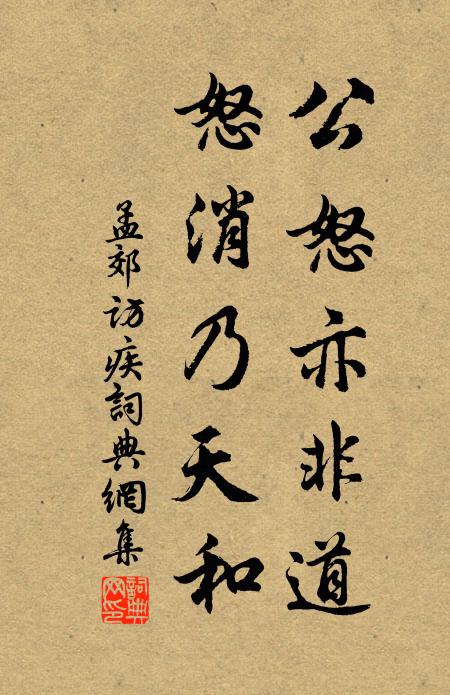 公怒亦非道
怒消乃天和
孟郊訪疾詞典網集
詞典网印